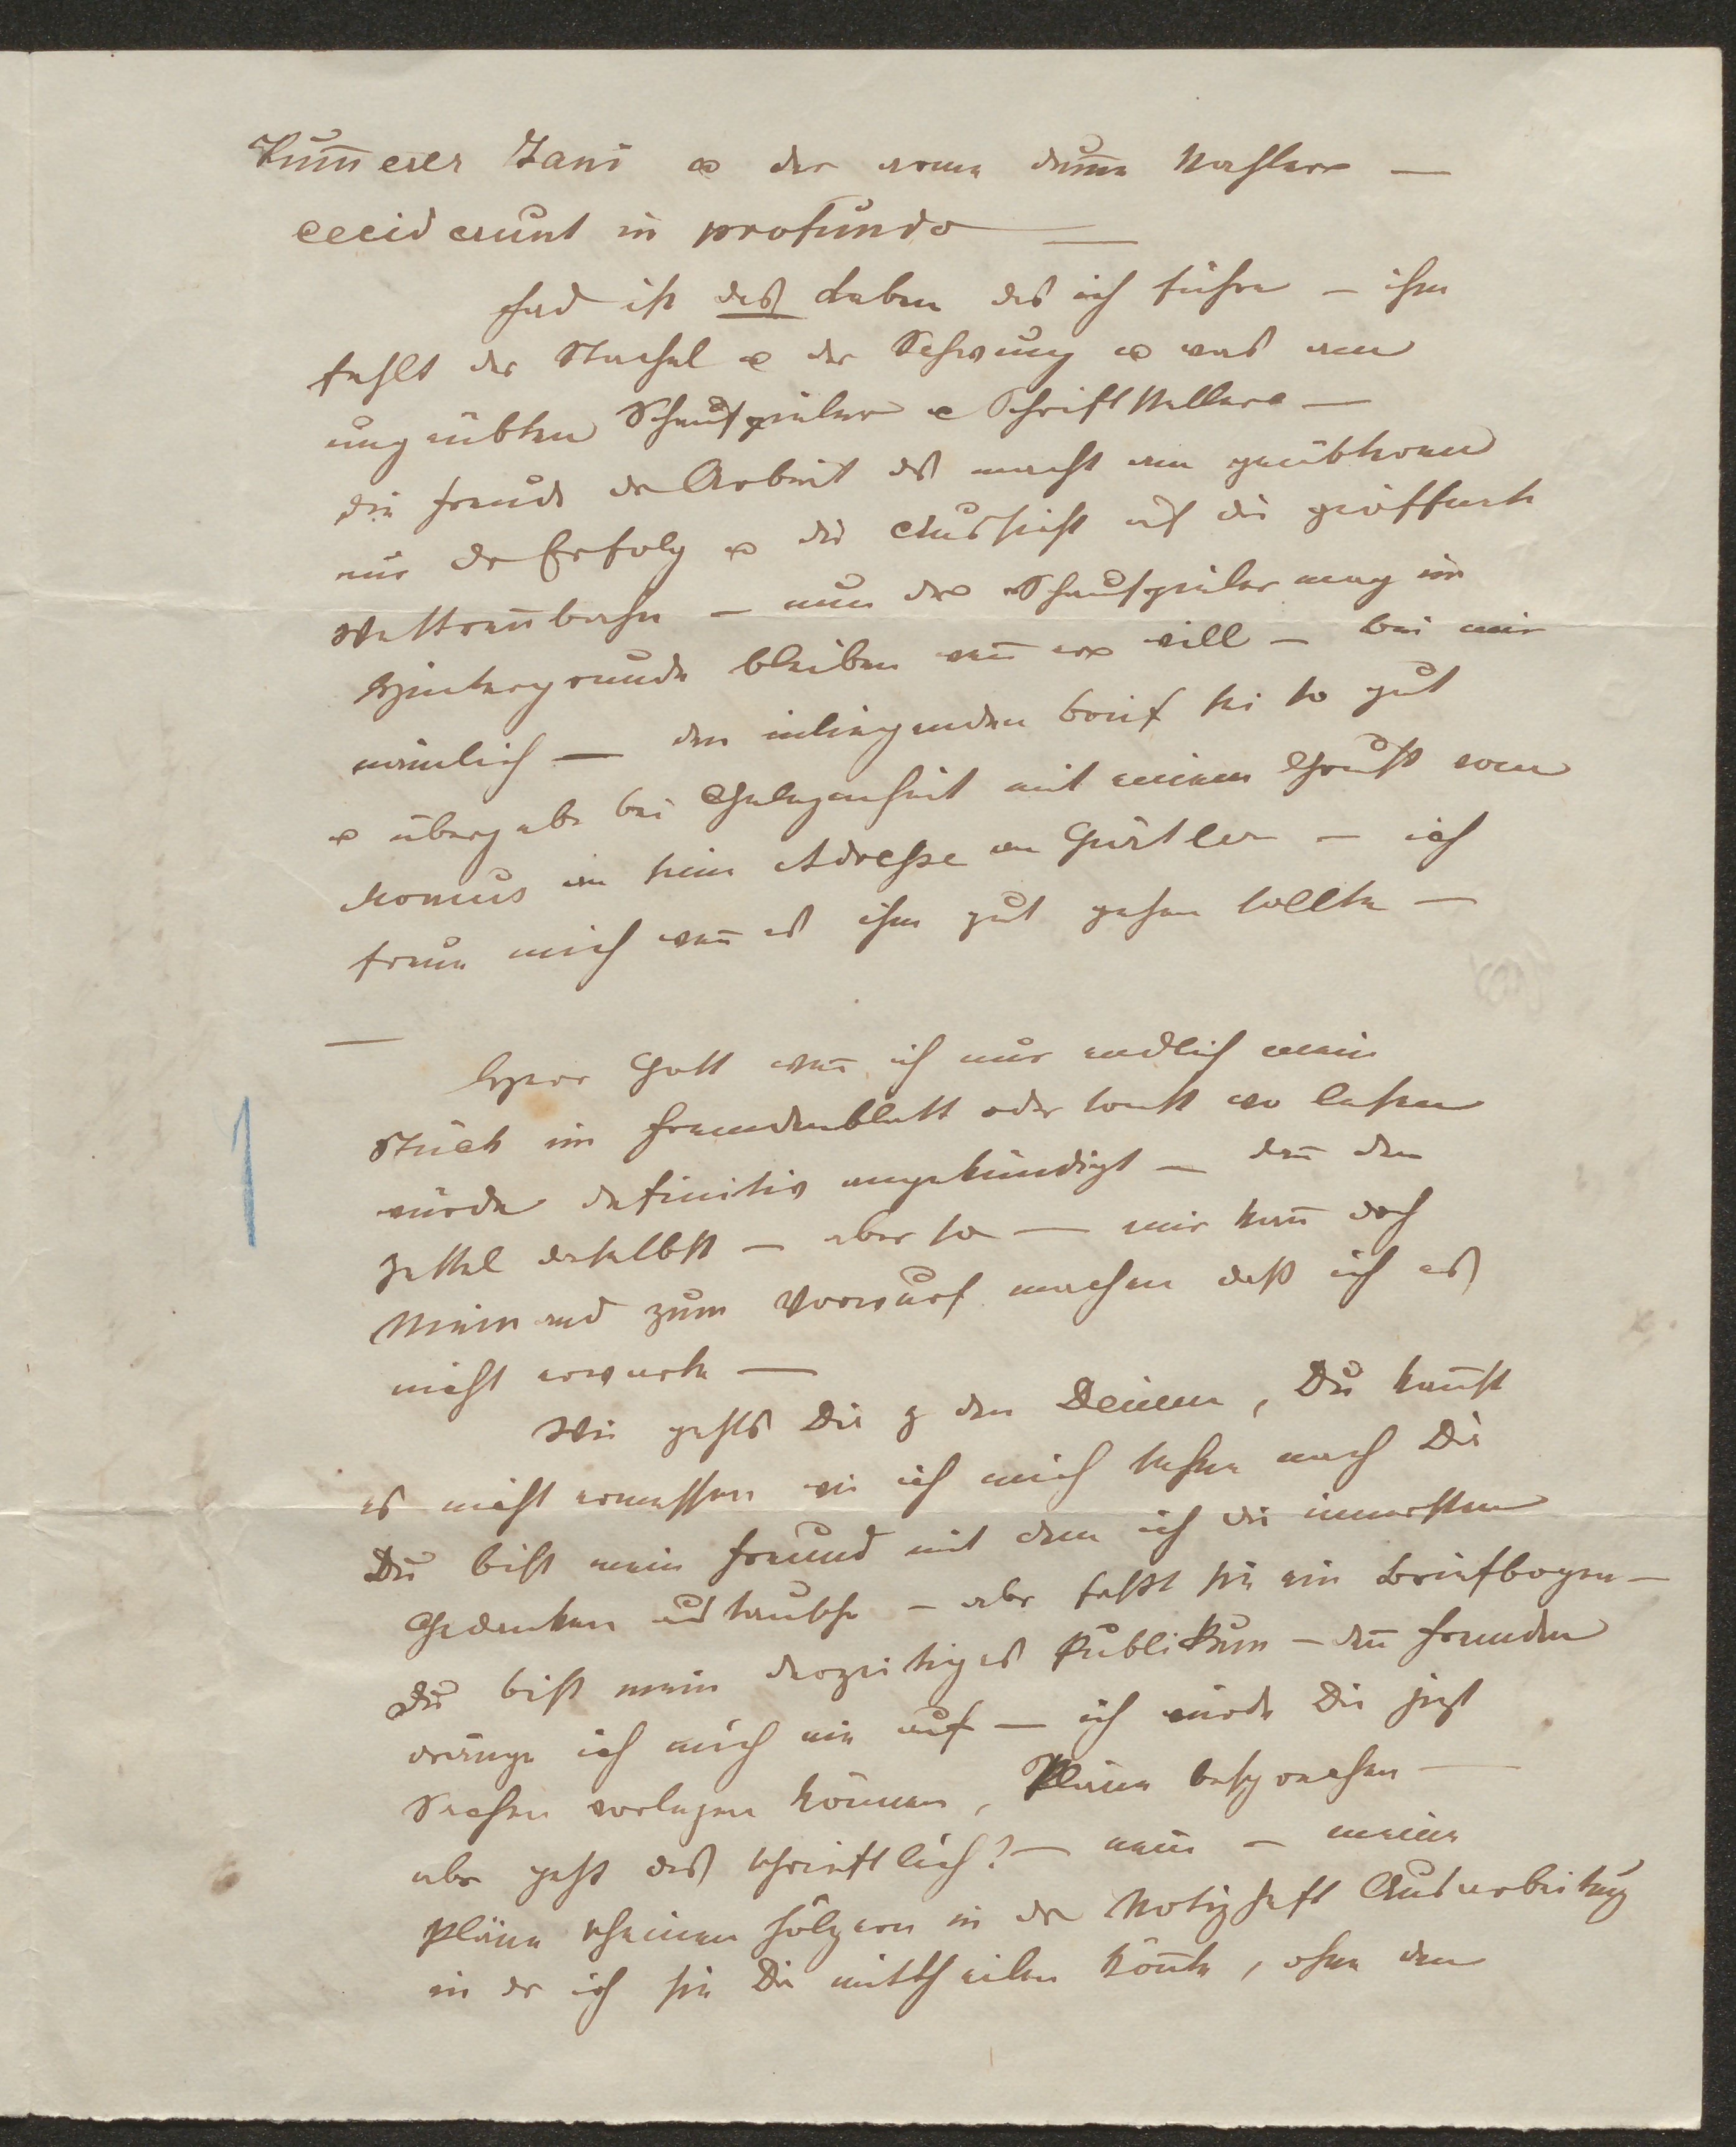 Kum̅erer Jani u der arme dum̅e Mahler —
ceciderunt in profundo —
Fad ist das Leben das ich führe – ihm
fehlt der Stachel u der Schwung u was am
ungeübten Schauspieler u Schriftsteller —
die Freude der Arbeit das macht am geübteren
nur der Erfolg u die Aussicht auf die geöffnete
Wettren̅bahn – nun der Schauspieler mag im
Hintergrunde bleiben wen̅ er will – bei mir
nämlich — den inliegenden Brief sei so gut
u übergebe bei Gelegenheit mit einem Gruß vom
Momus an seine Adresse an Gürtler – ich
freue mich wen̅ es ihm gut gehen sollte —
—
Herr Gott wen̅ ich nur endlich mein
Stück im Fremdenblatt oder sonst wo lesen
würde definitiv angekündigt – dan̅ den
Zettel daselbst – aber so — mir kan̅ doch
Niemand zum Vorwurf machen daß ich es
nicht erwarte —
Wie gehts Dir u den Deinen, Du kan̅st
es nicht ermessen wie ich mich sehne nach Dir
Du bist mein Freund mit dem ich die innersten
Gedanken austausche – aber faßt sie ein Briefbogen –
Du bist mein derzeitiges Publikum – den̅ Fremden
dränge ich mich nie auf — ich würde Dir jezt
Sachen vorlegen können, Pläne besprechen —
aber geht das schriftlich? — nein – meine
Pläne scheinen hölzern in der Notizhaft Ausarbeitung
in der ich sie Dir mittheilen kön̅te, ohne den